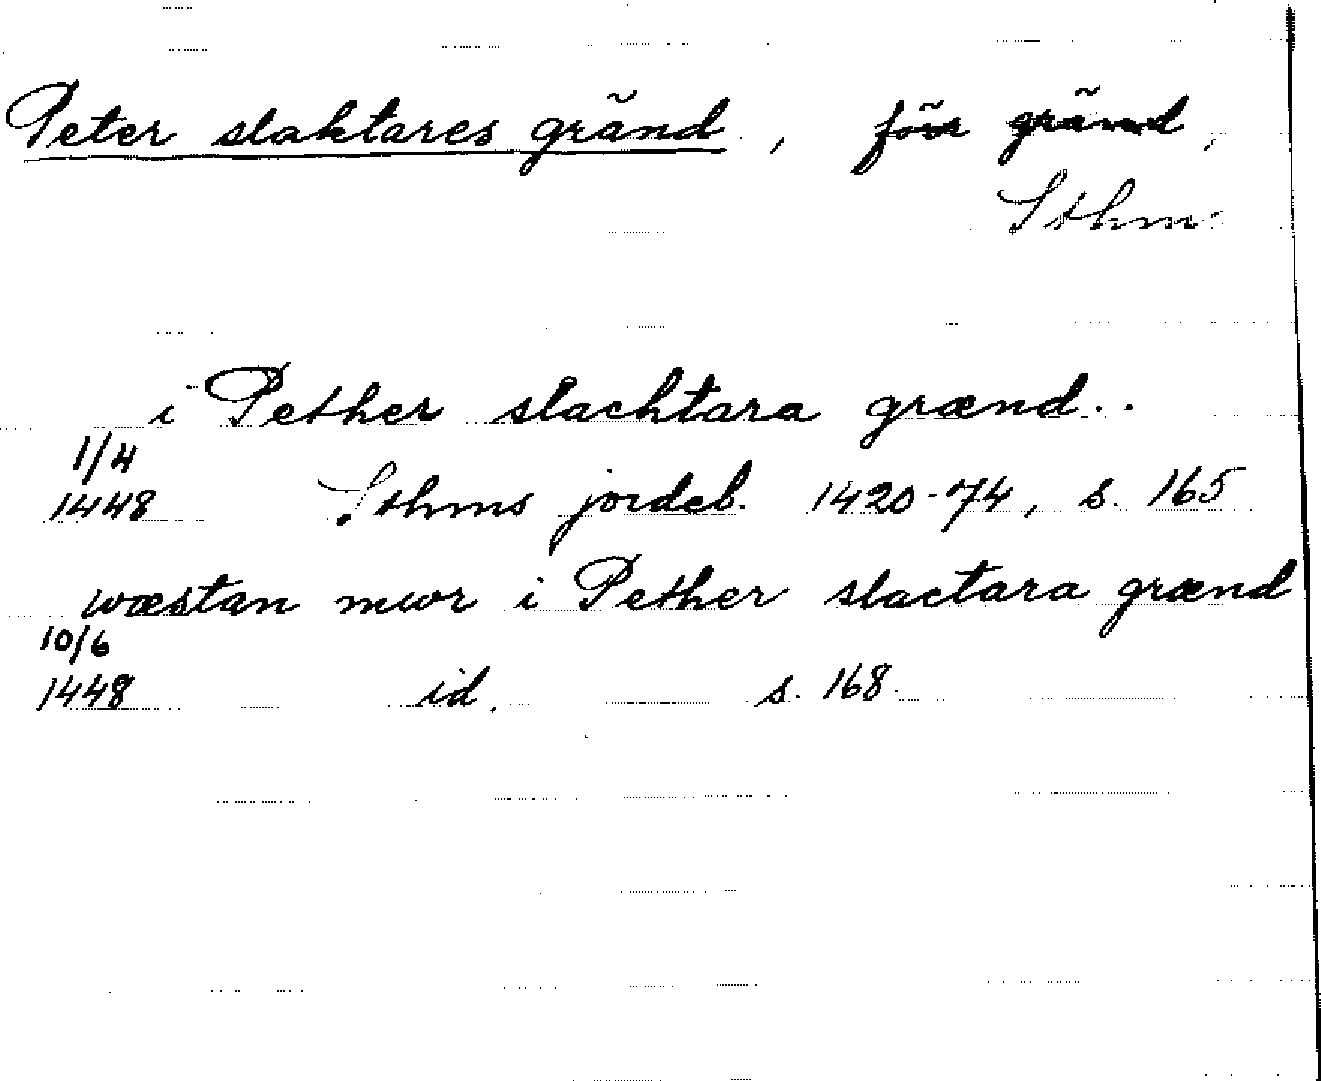 Peter slaktares gränd, förr gränd,
Sthm.
i Pether slachtara grænd..
1/4
1448 Sthms jordeb. 1420-74, s. 165
wæstan mwr i Pether slactara grænd
10/6
1448 id. s. 168